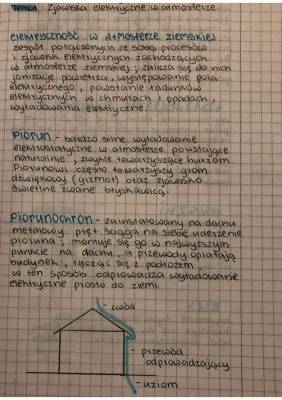 Temat: Zjawiska elektryczne w atmosferze
elektryczność w atmosferze ziemskiej
zespół połączonych ze sobą procesów
i zjawisk elektrycznych zachodzących
w atmosferze ziemskiej; zalicza się do nich
jonizację powietrza, występowanie pola
elektrycznego, powstanie ładunków
elektrycznych w chmurach i opadach,
wyładowania elektryczne.
Piorun - bardzo silne wyładowanie
elektrostatyczne w atmosferze powstające
naturalnie, zwykle towarzyszące burzom.
Piorunowi często towarzyszy grom
dźwiękowy (grzmot) oraz zjawisko
świetlne zwane błyskawicą.
Piorunochron - zainstalowany na dachu
metalowy pręt ściąga na siebie uderzenie
pioruna; montuje się go w najwyższym
punkcie na dachu, a przewody oplatają
budynek, łącząc się z podłożem.
w ten sposób odprowadza wyładowanie
elektryczne prosto do ziemi.
- zwód
- przewód
odprowadzający
- uziom